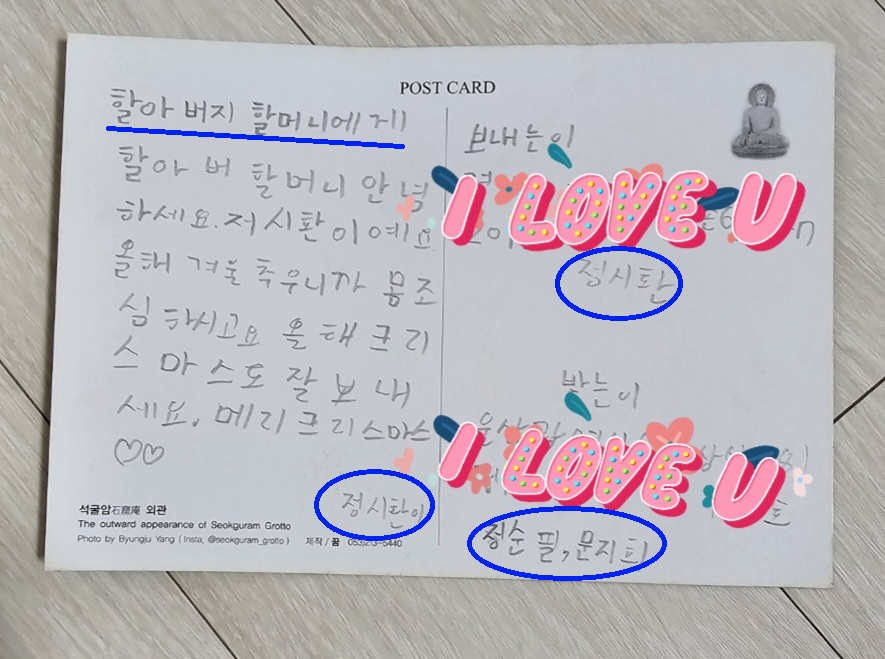 POST CARD
할아버지 할머니에게
할아버 할머니 안녕
하세요. 저 시환이예요
올해 겨울 추우니까 몸조
심 하시고요 올해 크리
스마스도 잘 보내
세요. 메리 크리스마스
♡♡
정시환이
석굴암石窟庵 외관
The outward appearance of Seokguram Grotto
Photo by Byungju Yang ( Insta, @seokguram_grotto )
보내는이
I LOVE U
정시환
받는이
I LOVE U
정순필, 문지희